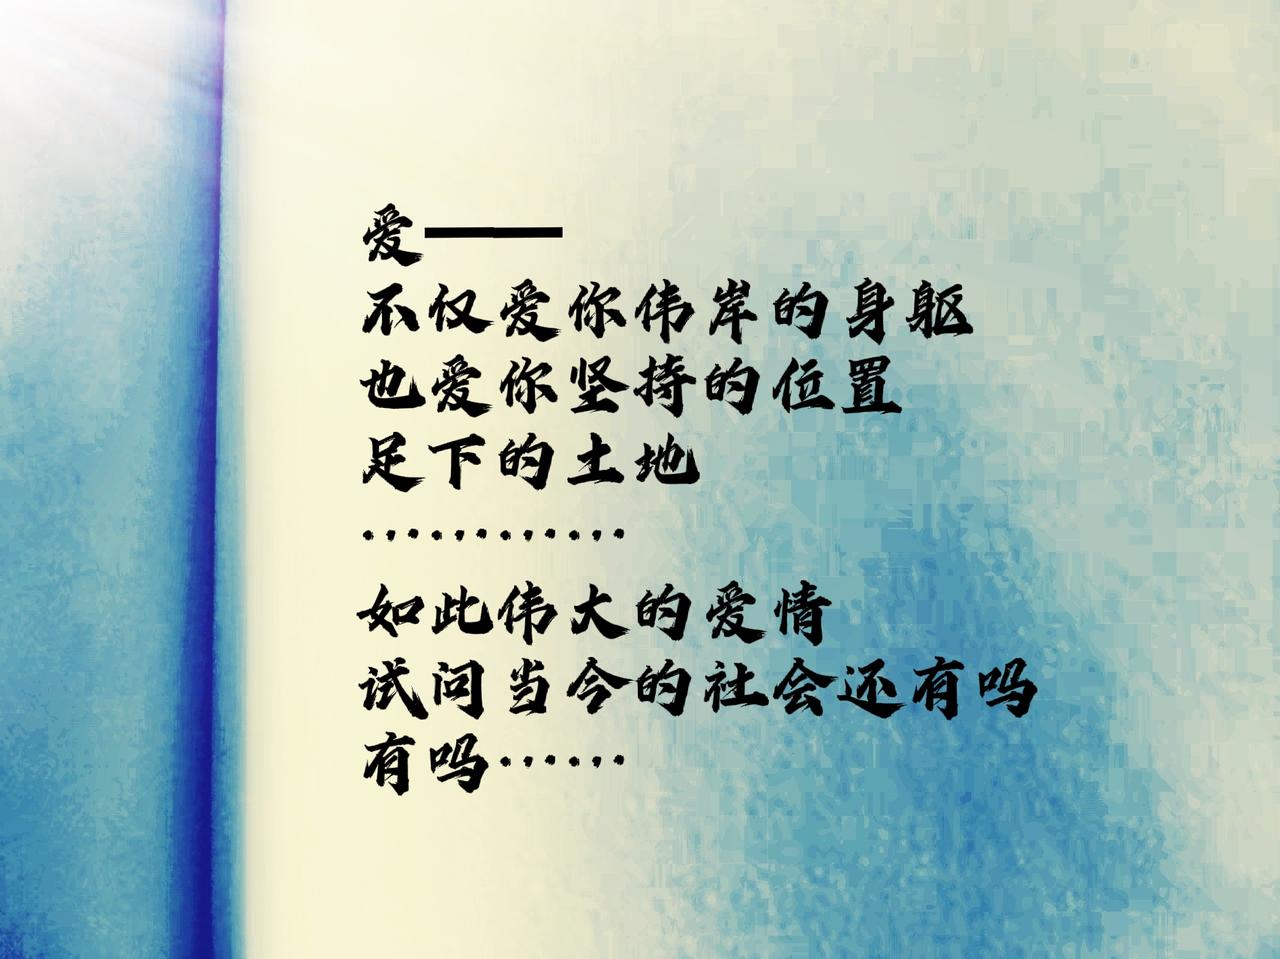 爱——
不仅爱你伟岸的身躯
也爱你坚持的位置
足下的土地
…………
如此伟大的爱情
试问当今的社会还有吗
有吗……